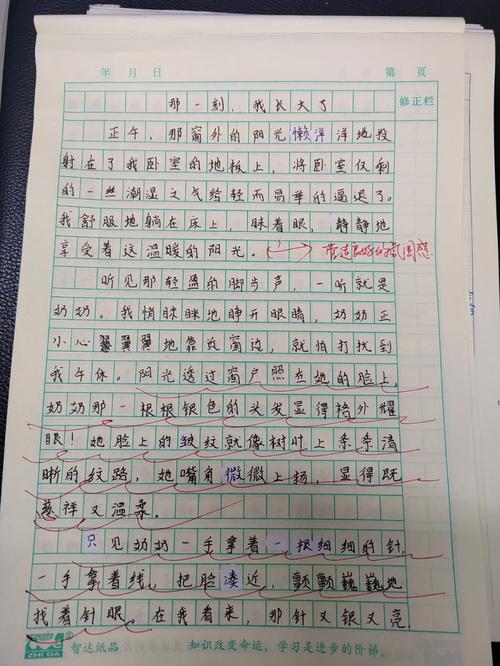 年 月 日 第 页
那一刻,我长大了 修正栏
正午,那窗外的阳光懒洋洋地投
射在了我卧室的地板上,将卧室仅剩
的一丝潮湿之气给轻而易举的逼退了。
我舒服地躺在床上,眯着眼,静静地
享受着这温暖的阳光。
听见那轻盈的脚步声,一听就是
奶奶。我悄眯眯地睁开眼睛,奶奶正
小心翼翼翼地靠近窗边,就怕打扰到
我午休。阳光透过窗户照在她的脸上,
奶奶那一根根银色的头发显得格外耀
眼!她脸上的皱纹就像树叶上条条清
晰的纹路,她嘴角微微上扬,显得既
慈祥又温柔。
只见奶奶一手拿着一根细细的针,
一手拿着线,把脸凑近,颤颤巍巍地
找着针眼。在我看来,那针又银又亮,
ZHI DA 智达纸品 知识改变命运,学习是进步的阶梯。